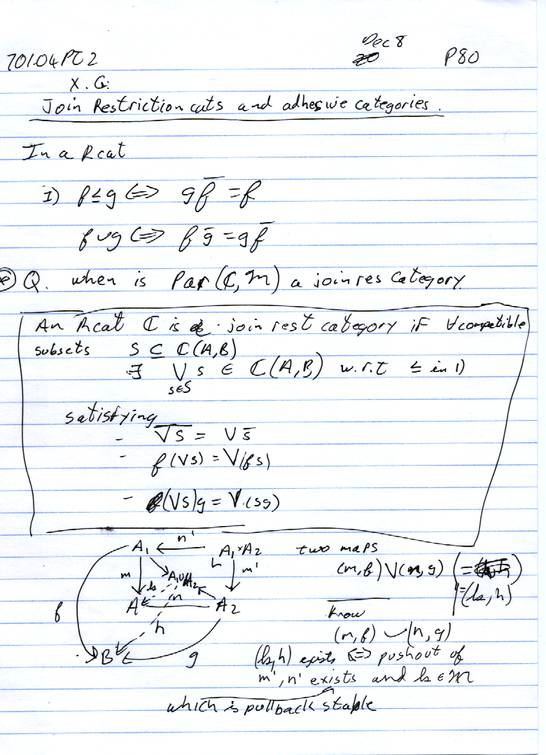 Dec 8
70104PT2 P80
X. G.
Join Restriction cats and adhesive categories.
In a Rcat
1) f ≤ g ⟺ g f̄ = f
f ⌣ g ⟺ f ḡ = g f̄
Q. when is Par(ℂ, 𝓜) a join res category
An Rcat ℂ is a join rest category if ∀ compatible
subsets S ⊆ ℂ(A,B)
∃ ⋁ s ∈ ℂ(A,B) w.r.t ≤ in 1)
s∈S
satisfying
- \overline{⋁S} = ⋁ s̄
- f(⋁S) = ⋁(fs)
- (⋁S)g = ⋁(sg)
A₁ n' A₁∧A₂ two maps
m A₁∪A₂ m' (m,f) ⋁ (n,g) (=
A n A₂ = (k,h)
f h know
(m,f) ⌣ (n,g)
B g (k,h) exists ⟺ pushout of
m', n' exists and k ∈ 𝓜
which is pullback stable